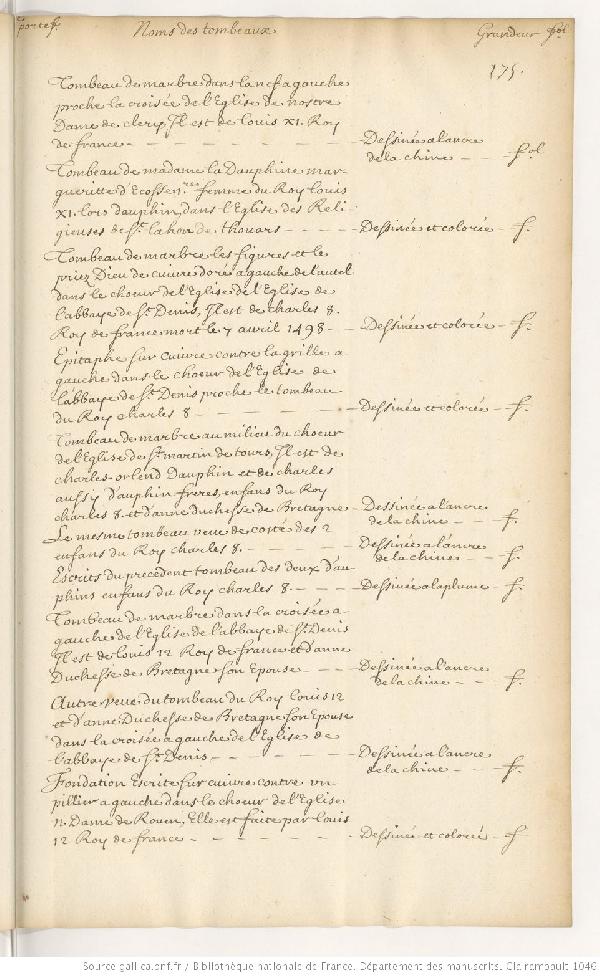 portef. Noms des tombeaux Grandeur fol
175.
Tombeau de marbre dans la nef a gauche
proche la croisée de l'Eglise de nostre
Dame de clery, Il est de Louis XI. Roy
de france - - - - - - Dessinée a l'ancre
de la chine - - fol
Tombeau de madame la Dauphine mar-
gueritte d'Ecosse 1.re femme du Roy Louis
XI. lors dauphin, dans l'Eglise des Reli-
gieuses de St. lahon de thouars - - - - Dessinée et colorée - f.
Tombeau de marbre les figures et le
priez Dieu de cuivre doré a gauche de l'autel
dans le choeur de l'Eglise de l'Eglise de
l'abbaye de St. Denis, Il est de charles 8.
Roy de france mort le 7 avril 1498 - - Dessinée et colorée - f.
Epitaphe sur cuivre contre la grille a
gauche dans le choeur de l'Eglise de
l'abbaye de St. Denis proche le tombeau
du Roy charles 8 - - - - - - Dessinée et colorée - f.
Tombeau de marbre au milieu du choeur
de l'Eglise de St. martin de tours, Il est de
charles-orlend Dauphin et de charles
aussy d'auphin freres, enfans du Roy
charles 8. et d'anne duchesse de Bretagne - Dessinée a l'ancre
de la chine - - f.
Le mesme tombeau veue de costé des 2
enfans du Roy charles 8. - - - - Dessinée a l'ancre
de la chine - f.
Escrits du precedent tombeau des deux d'au-
phins enfans du Roy charles 8. - - - Dessinée a la plume - f.
Tombeau de marbre dans la croisée a
gauche de l'Eglise de l'abbaye de St. Denis
Il est de Louis 12 Roy de france et d'anne
Duchesse de Bretagne son Epouse - - - Dessinée a l'ancre
de la chine - - f.
Autre veue du tombeau du Roy Louis 12
et d'anne Duchesse de Bretagne son Epouse
dans la croisée a gauche de l'Eglise de
l'abbaye de St. Denis - - - - - Dessinée a l'ancre
de la chine - - f.
Fondation Escrite sur cuivre contre un
pillier a gauche dans le choeur de l'Eglise
n. Dame de Rouen, Elle est faite par Louis
12 Roy de france - - - - - - Dessinée et colorée - f
Source gallica.bnf.fr / Bibliothèque nationale de France. Département des manuscrits. Clairambault 1046